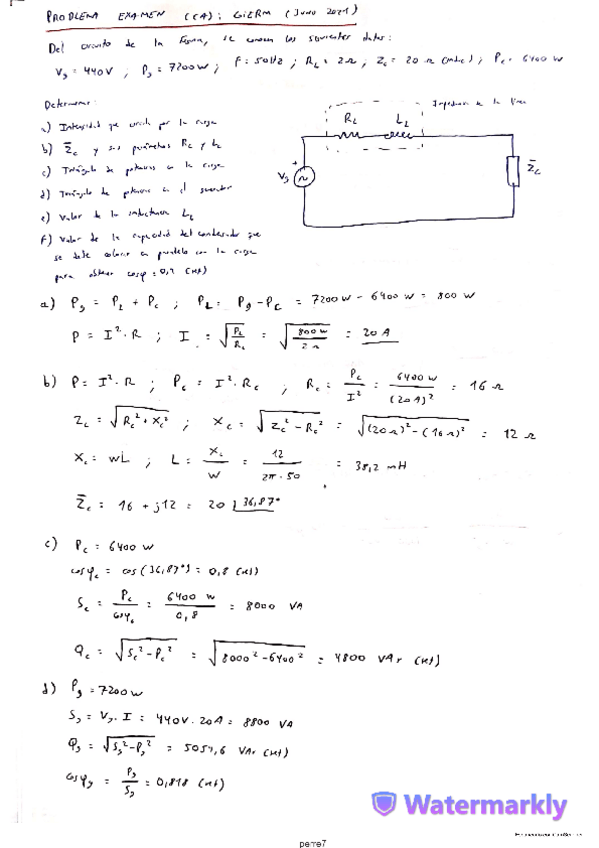 PROBLEMA EXAMEN (CA): GIERM (JUNIO 2021)
Del circuito de la figura, se conocen los siguientes datos:
Vg = 440V ; Pg = 7200W ; f = 50Hz ; RL = 2Ω ; Zc = 20 Ω (ind) ; Pc = 6400 W
Determinar:
a) Intensidad que circula por la carga
b) Z̄c y sus parámetros Rc y Lc
c) Triángulo de potencias en la carga
d) Triángulo de potencias en el generador
e) Valor de la inductancia LL
f) Valor de la capacidad del condensador que
se debe colocar en paralelo con la carga
para obtener cosφ = 0,9 (ind)
Impedancia de la línea
RL LL
Vg
Z̄c
a) Pg = PL + Pc ; PL = Pg - Pc = 7200W - 6400W = 800 W
P = I²·R ; I = √(PL/RL) = √(800 W/2 Ω) = 20 A
b) P = I²·R ; Pc = I²·Rc ; Rc = Pc/I² = 6400 W/(20 A)² = 16 Ω
Zc = √(Rc² + Xc²) ; Xc = √(Zc² - Rc²) = √((20Ω)² - (16Ω)²) = 12 Ω
Xc = WL ; L = Xc/W = 12/2π·50 = 38,2 mH
Z̄c = 16 + j12 = 20 |36,87°
c) Pc = 6400 W
cosφc = cos(36,87°) = 0,8 (ind)
Sc = Pc/cosφc = 6400 W/0,8 = 8000 VA
Qc = √(Sc² - Pc²) = √(8000² - 6400²) = 4800 VAr (ind)
d) Pg = 7200W
Sg = Vg·I = 440V·20A = 8800 VA
Qg = √(Sg² - Pg²) = 5059,6 VAr (ind)
cosφg = Pg/Sg = 0,818 (ind)
Watermarkly
perre7